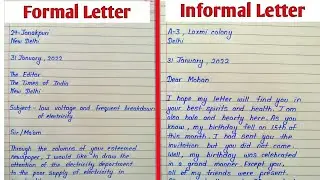 Formal Letter
24 Janakpuri
New Delhi
31 January, 2022
The Editor
The Times of India
New Delhi
Subject - low voltage and frequent breakdown
of electricity
Sir/Mam
Through the columns of your esteemed
newspaper, I would like to draw the
attention of the electricity department
to the poor supply of electricity in
Informal Letter
A-3, Laxmi colony
Delhi
31 January, 2022
Dear Mohan
I hope my letter will find you in
your best spirits and health. I am
also hale and hearty here. As you
know, my birthday fell on 15th of
this month. I had sent you the
invitation but you did not come.
Well, my birthday was celebrated
in a grand manner. Except you,
all of my friends were present.